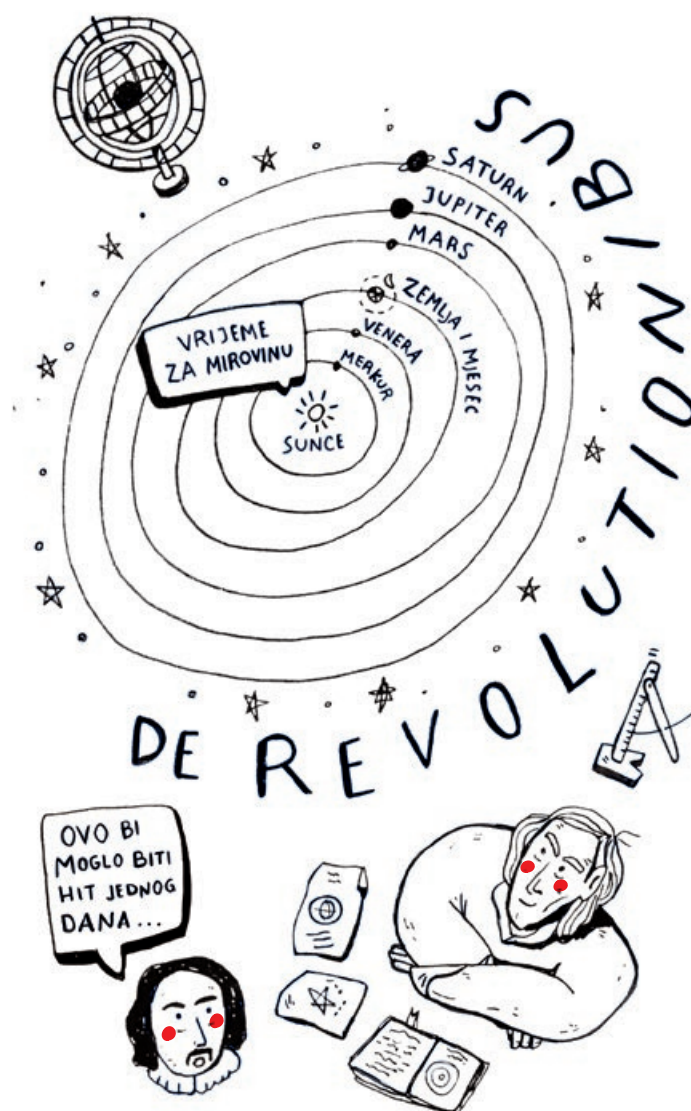 SATURN
JUPITER
MARS
ZEMLJA I MJESEC
VENERA
MERKUR
VRIJEME
ZA MIROVINU
SUNCE
DE REVOLUTIONIBUS
OVO BI
MOGLO BITI
HIT JEDNOG
DANA...